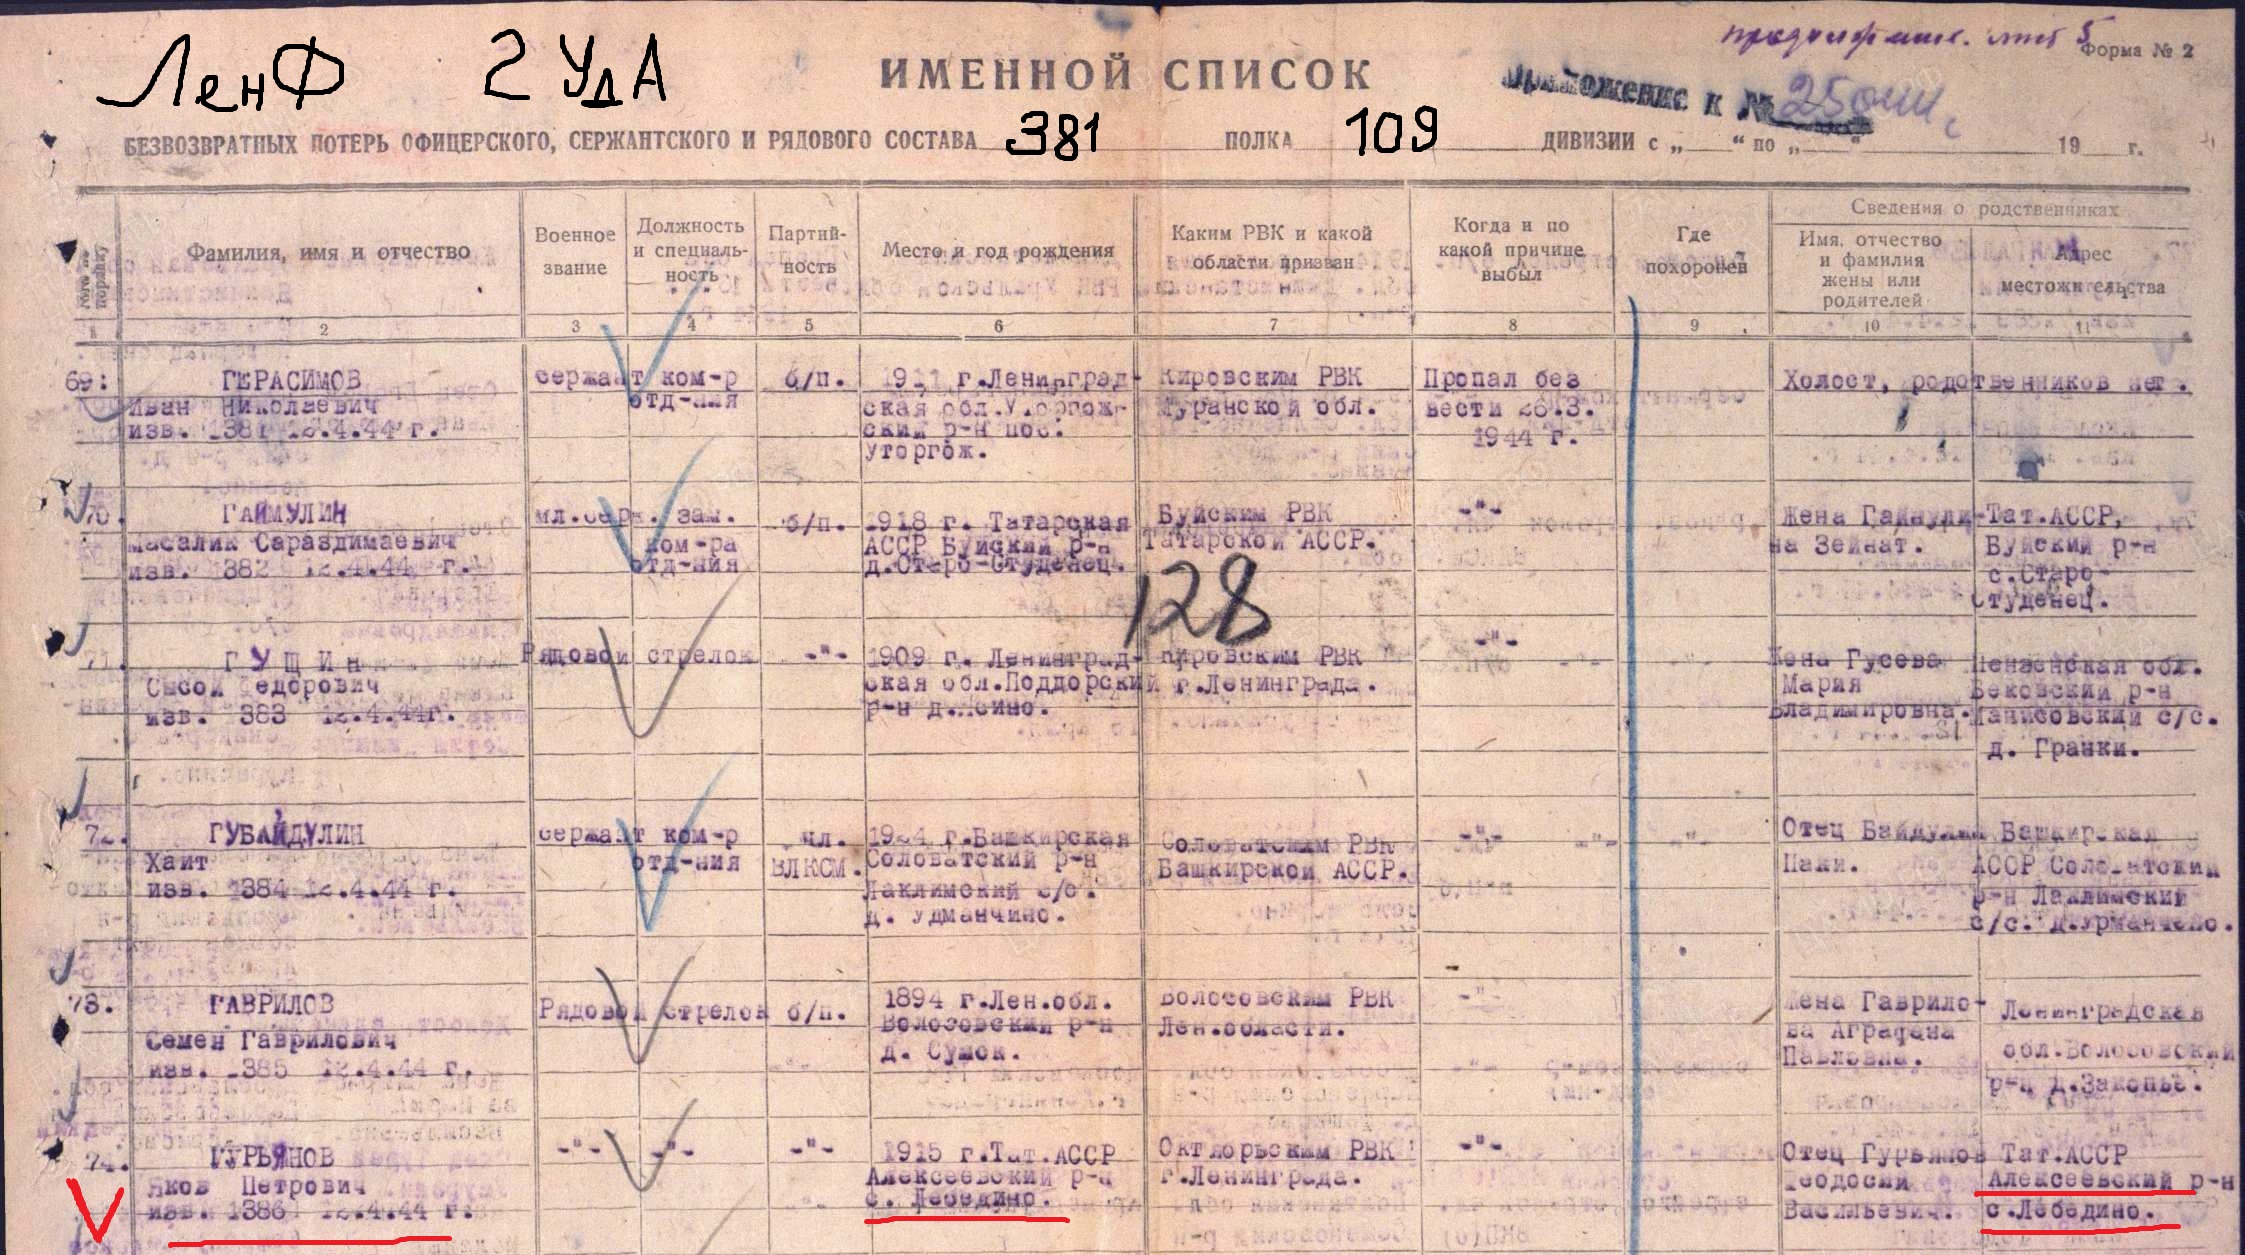 ЛенФ 2 УдА
ИМЕННОЙ СПИСОК
лист 5
Форма № 2
Приложение к № 250
БЕЗВОЗВРАТНЫХ ПОТЕРЬ ОФИЦЕРСКОГО, СЕРЖАНТСКОГО И РЯДОВОГО СОСТАВА 381 ПОЛКА 109 ДИВИЗИИ с „ “ по „ “ 19 г.
№№ по порядку
Фамилия, имя и отчество
Военное звание
Должность и специаль-ность
Партий-ность
Место и год рождения
Каким РВК и какой области призван
Когда и по какой причине выбыл
Где похоронен
Сведения о родственниках
Имя, отчество и фамилия жены или родителей
Адрес местожительства
1 2 3 4 5 6 7 8 9 10 11
69. ГЕРАСИМОВ
Иван Николаевич
изв. 1381 12.4.44 г.
сержант
ком-р
отд-ния
б/п.
1911 г.Ленинград-
ская обл.Уторгож-
ский р-н пос.
Уторгож.
Кировским РВК
обл.
Пропал без
вести 26.3.
1944 г.
Холост, родственников нет.
70. ГАЙМУЛИН
изв. 382 12.4.44 г.
мл.серж.
зам.
ком-ра
отд-ния
б/п.
1918 г. Татарская
АССР Буйский р-н
д.Старо-Студенец.
Буйским РВК
Татарской АССР.
-"-
Жена Гайнули-
на Зейнат.
Тат.АССР,
Буйский р-н
с.Старо-
Студенец.
128
71. ГУЩИН
Сысой Федорович
изв. 383 12.4.44г.
Рядовой
стрелок
-"-
1909 г. Ленинград-
ская обл.Поддорский
р-н
Кировским РВК
г.Ленинграда.
-"-
Жена Гусева
Мария
Владимировна.
Пензенская обл.
Бековский р-н
с/с.
д. Гранки.
72. ГУБАЙДУЛИН
Хаит
изв. 1384 12.4.44 г.
сержант
ком-р
отд-ния
чл.
ВЛКСМ.
1924 г.Башкирская
Соловатский р-н
Лаклимский с/с.
д. Удманчино.
Соловатским РВК
Башкирской АССР.
-"- -"- -"-
Отец
Башкирская
АССР Соловатский
р-н Лаклимский
с/с.
73. ГАВРИЛОВ
Семен Гаврилович
изв. 1385 12.4.44 г.
Рядовой
стрелок
б/п.
1894 г.Лен.обл.
Волосовский р-н
д. Сумок.
Волосовским РВК
Лен.области.
-"-
Жена Гаврило-
ва Аграфена
Павловна.
Ленинградская
обл.Волосовский
р-н д.Законье.
74. ГУРЬЯНОВ
Яков Петрович
изв. 1386 12.4.44 г.
-"- -"- -"-
1915 г.Тат.АССР
Алексеевский р-н
с. Лебедино.
Октяорьским РВК
г.Ленинграда.
-"-
Отец Гурьянов
Феодосий
Васильевич.
Тат.АССР
Алексеевский р-н
с.Лебедино.